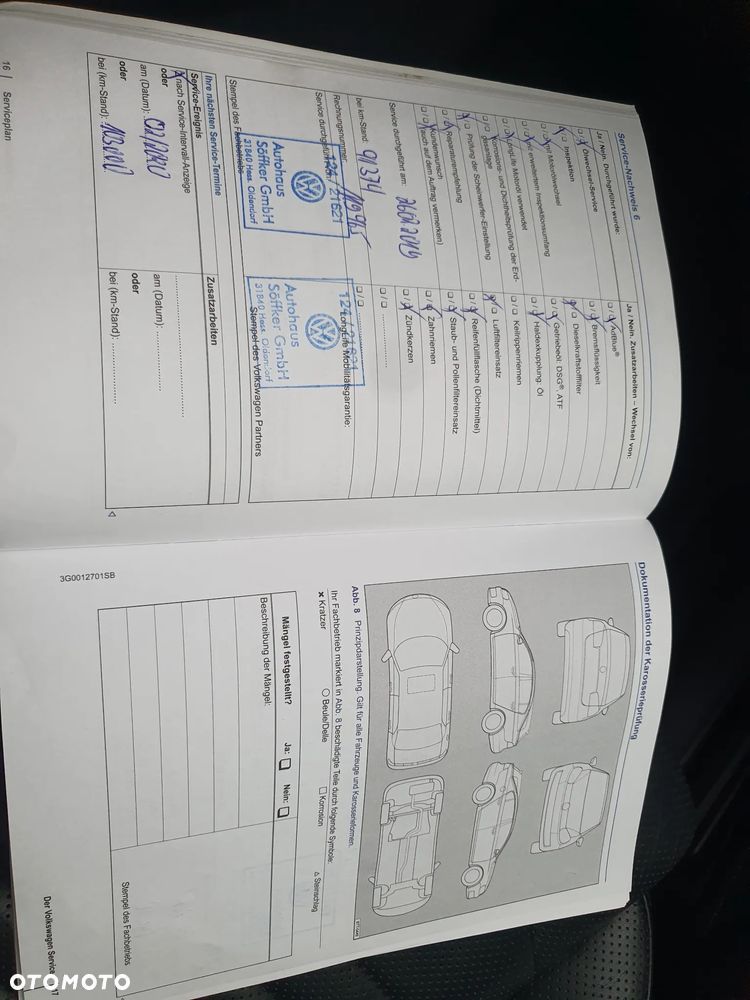 Service-Nachweis 6
Ja / Nein. Durchgeführt wurde:
Ölwechsel-Service
Inspektion
mit Motorölwechsel
mit erweitertem Inspektionsumfang
LongLife Motoröl verwendet
Korrosions- und Dichtheitsprüfung der Erd-
Gasanlage
Prüfung der Scheinwerfer-Einstellung
Reparaturempfehlung
Kundenwunsch
(auch auf dem Auftrag vermerken)
Service durchgeführt am: 26.07.2019
bei km-Stand: 91374
Rechnungsnummer:
Service durchgeführt
124 / 21621
Autohaus
Söffker GmbH
31840 Hess. Oldendorf
Stempel des Fachbetriebs
Ja / Nein. Zusatzarbeiten – Wechsel von:
AdBlue®
Bremsflüssigkeit
Dieselkraftstofffilter
Getriebeöl: DSG® ATF
Haldexkupplung: Öl
Keilrippenriemen
Luftfiltereinsatz
Reifenfüllflasche (Dichtmittel)
Staub- und Pollenfiltereinsatz
Zahnriemen
Zündkerzen
LongLife Mobilitätsgarantie:
124 / 21621
Autohaus
Söffker GmbH
31840 Hess. Oldendorf
Stempel des Volkswagen Partners
Ihre nächsten Service-Termine
Service-Ereignis
nach Service-Intervall-Anzeige
oder
am (Datum):
oder
bei (km-Stand):
Zusatzarbeiten
am (Datum):
oder
bei (km-Stand):
16 | Serviceplan
Dokumentation der Karosserieprüfung
Abb. 8 Prinzipdarstellung. Gilt für alle Fahrzeuge und Karosserieformen.
Ihr Fachbetrieb markiert in Abb. 8 beschädigte Teile durch folgende Symbole:
× Kratzer ○ Beule/Delle □ Korrosion △ Steinschlag
Mängel festgestellt? Ja: Nein:
Beschreibung der Mängel:
Stempel des Fachbetriebs
3G0012701SB
Der Volkswagen Service 17
OTOMOTO